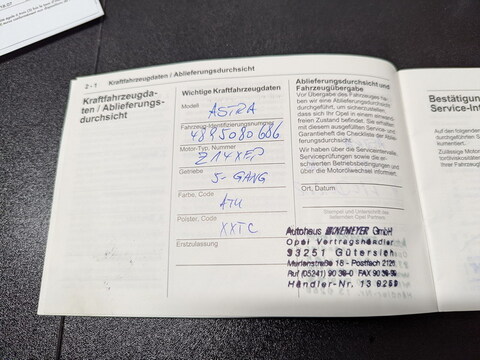 2 - 1 Kraftfahrzeugdaten / Ablieferungsdurchsicht
Kraftfahrzeugda-
ten / Ablieferungs-
durchsicht
Wichtige Kraftfahrzeugdaten
Modell
ASTRA
Fahrzeug-Identifizierungsnummer
4895080606
Motor-Typ, Nummer
Z14XEP
Getriebe
5-GANG
Farbe, Code
Polster, Code
XXTC
Erstzulassung
Ablieferungsdurchsicht und
Fahrzeugübergabe
Vor Übergabe des Fahrzeuges ha-
ben wir eine Ablieferungsdurchsicht
durchgeführt, um sicherzustellen,
dass sich Ihr Opel in einem einwand-
freien Zustand befindet. Sie erhalten
mit diesem ausgefüllten Service- und
Garantieheft die Checkliste der Ablie-
ferungsdurchsicht.
Wir haben über die Serviceintervalle,
Serviceprüfungen sowie die er-
schwerten Betriebsbedingungen und
über die Motorölwechsel informiert.
Ort, Datum
Stempel und Unterschrift des
liefernden Opel Partners
Autohaus GmbH
Opel Vertragshändler
33251 Gütersloh
- Postfach 2126
Ruf (05241) 90 FAX
Händler-Nr. 13
Bestätigun
Service-Int
Auf den folgenden
durchgeführten S
kumentiert.
Zulässige Motor
Ihrer Fahrzeug